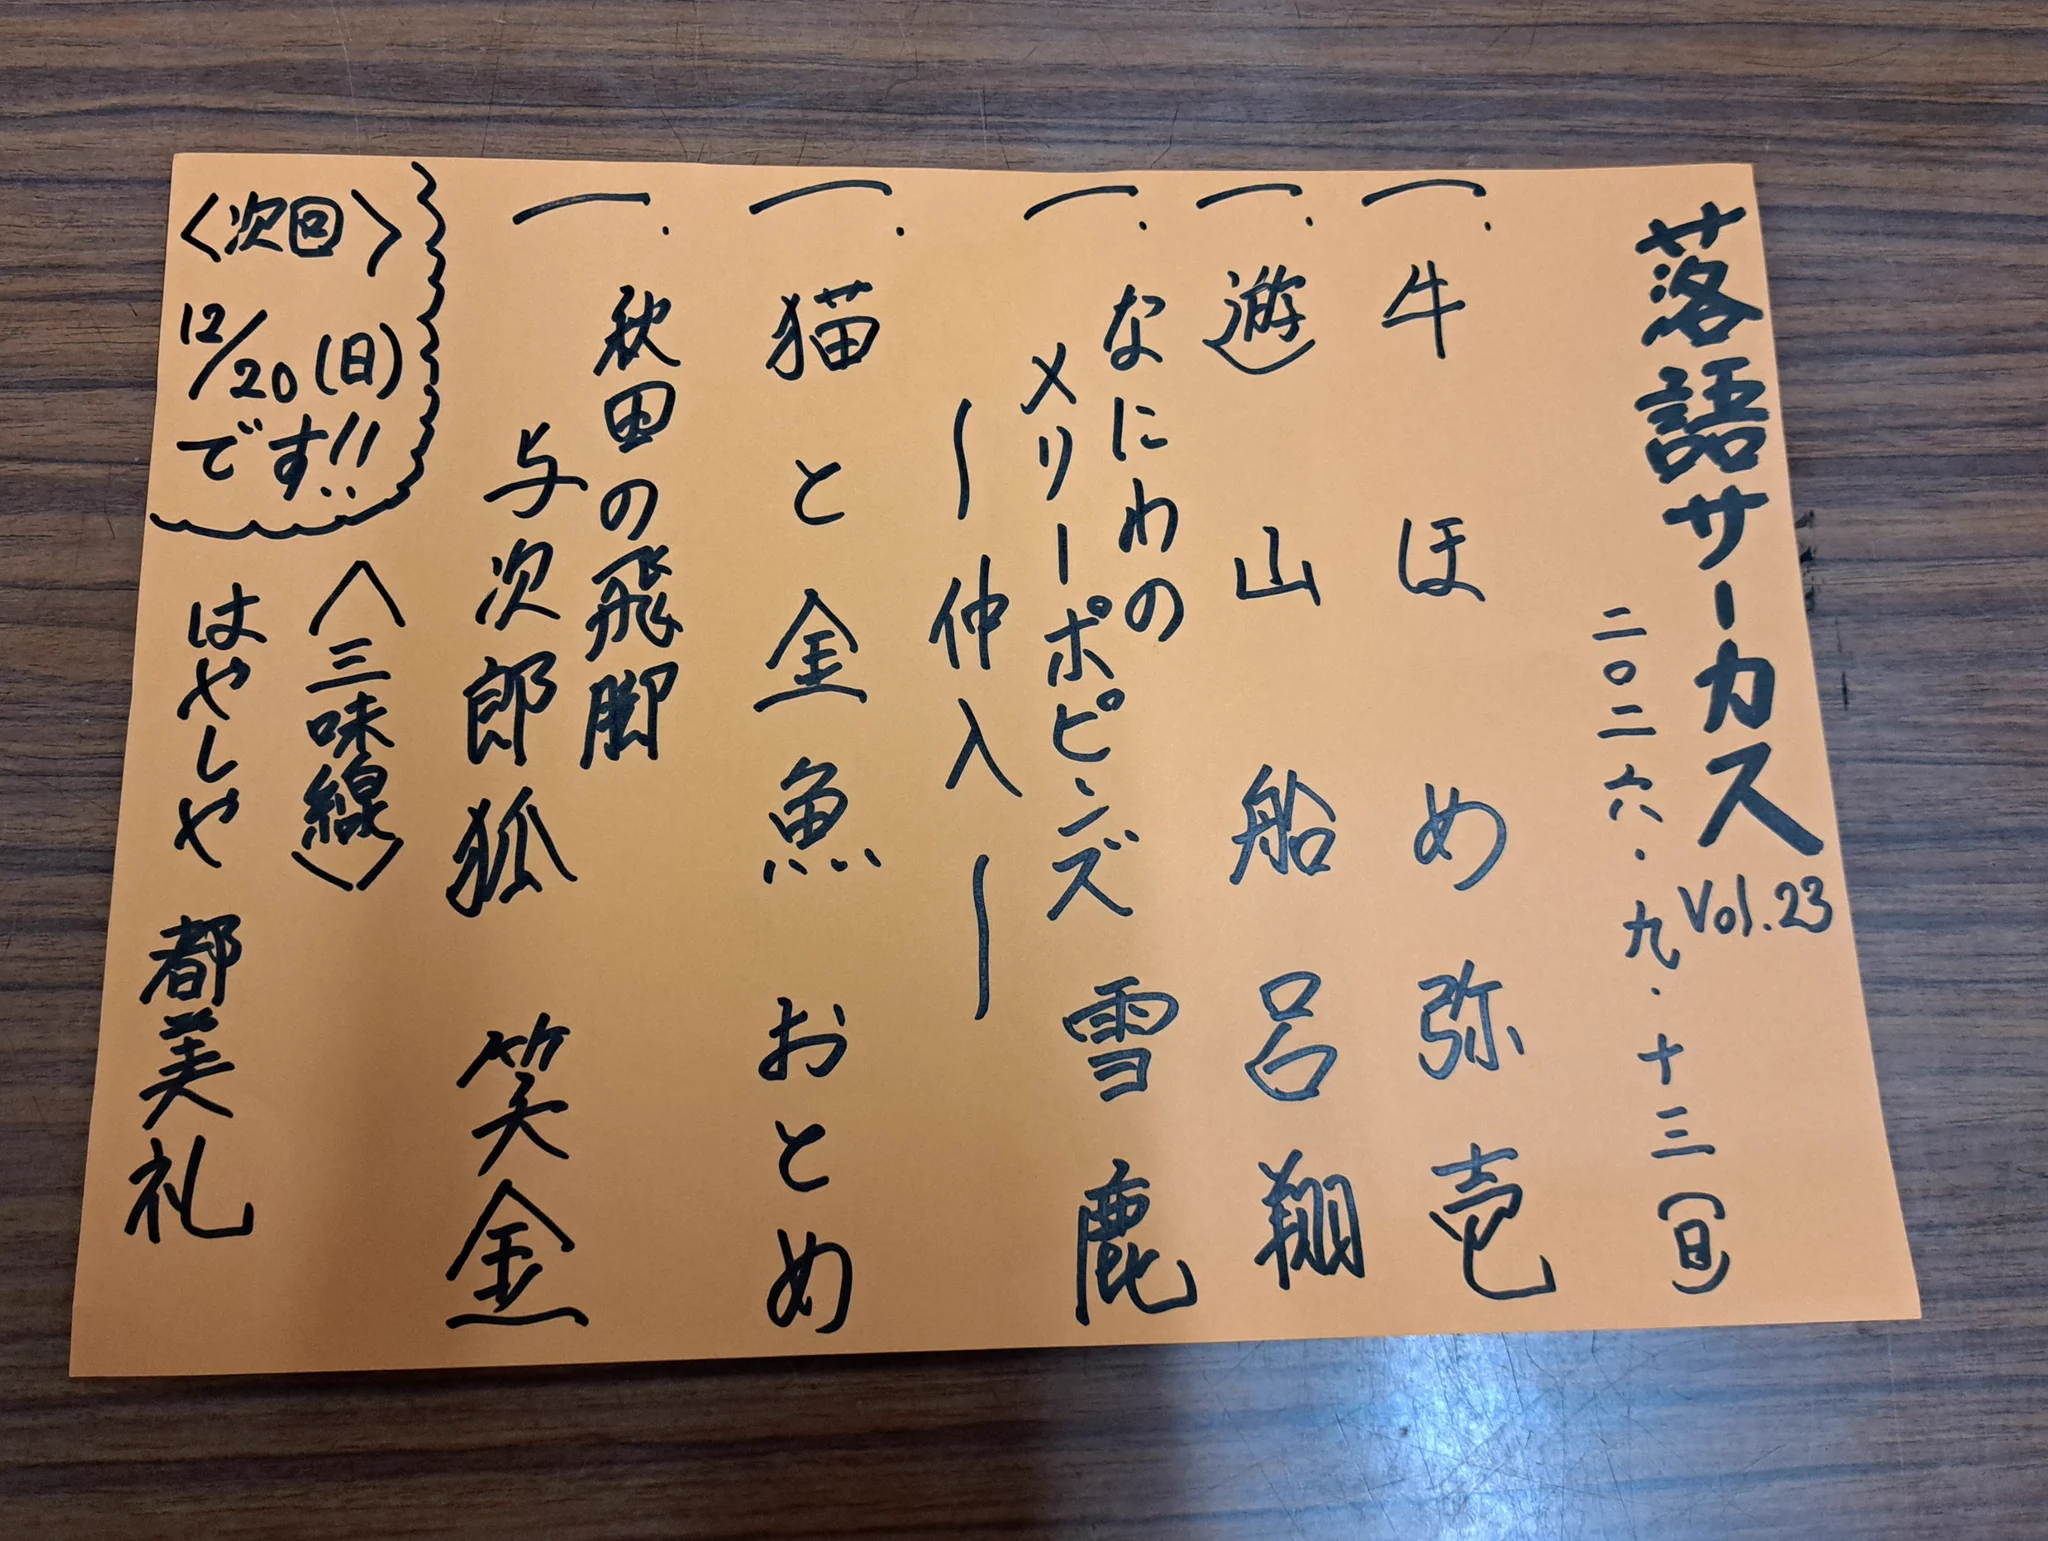 落語サーカス Vol.23
二〇二六.九.十三(日)
一. 牛ほめ 弥壱
一. 遊山船 呂翔
一. なにわの
メリーポピンズ 雪鹿
〜仲入〜
一. 猫と金魚 おとめ
一. 秋田の飛脚
与次郎狐 笑金
〈三味線〉
はやしや 都美礼
〈次回〉
12/20(日)
です!!